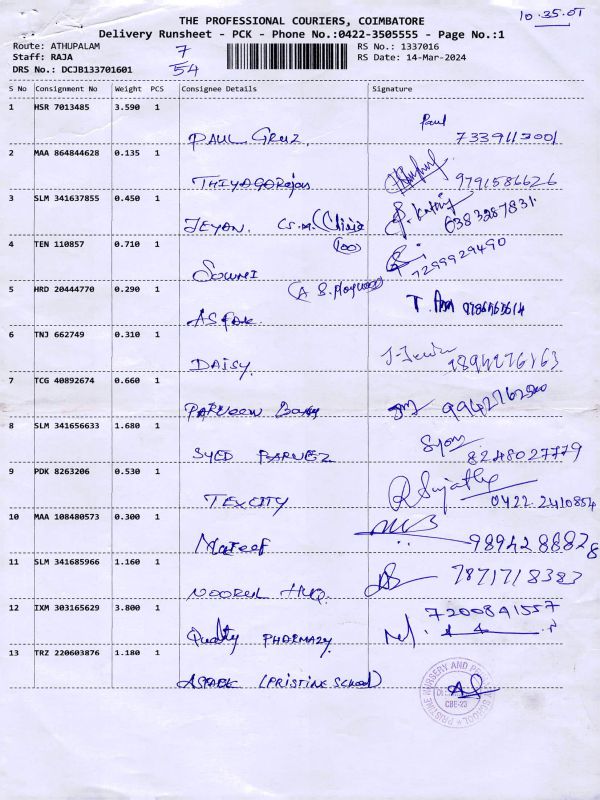 THE PROFESSIONAL COURIERS, COIMBATORE
10.35.01
Delivery Runsheet - PCK - Phone No.:0422-3505555 - Page No.:1
Route: ATHUPALAM
Staff: RAJA
DRS No.: DCJB133701601
7/54
RS No.: 1337016
RS Date: 14-Mar-2024
S No Consignment No Weight PCS Consignee Details Signature
1 HSR 7013485 3.590 1
PAUL Paul
2 MAA 864844628 0.135 1
THIYAGARajan 9791586626
3 SLM 341637855 0.450 1
JEYAN. (Clinic) 6383287831
4 TEN 110857 0.710 1
(100)
SOWMI 7299929490
5 HRD 20444770 0.290 1
ASFAK. T.
6 TNJ 662749 0.310 1
DAISY. 9894276163
7 TCG 40892674 0.660 1
PARVEEN
8 SLM 341656633 1.680 1
SYED PARVEZ 8248027779
9 PDK 8263206 0.530 1
TEXCITY R Sujatha 0422.2410854
10 MAA 108480573 0.300 1
989428882 8
11 SLM 341685966 1.160 1
NOORUL HUQ. 7871718383
12 IXM 303165629 3.800 1
7200841557
Quality PHARMAZY.
13 TRZ 220603876 1.180 1
(PRISTINE SCHOOL)
PRISTINE NURSERY AND SCHOOL
CBE-23